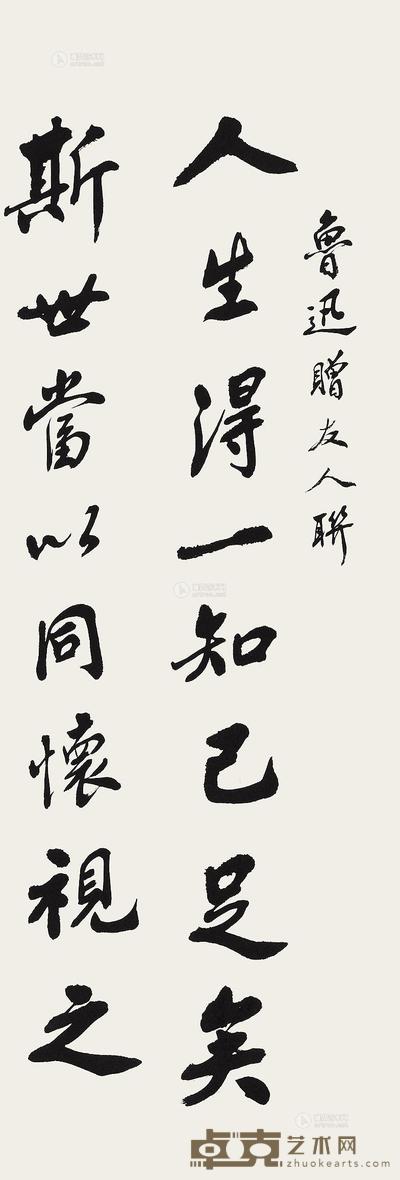 魯迅贈友人聯
人生得一知己足矣
斯世當以同懷視之
卓克艺术网
zhuokearts.com